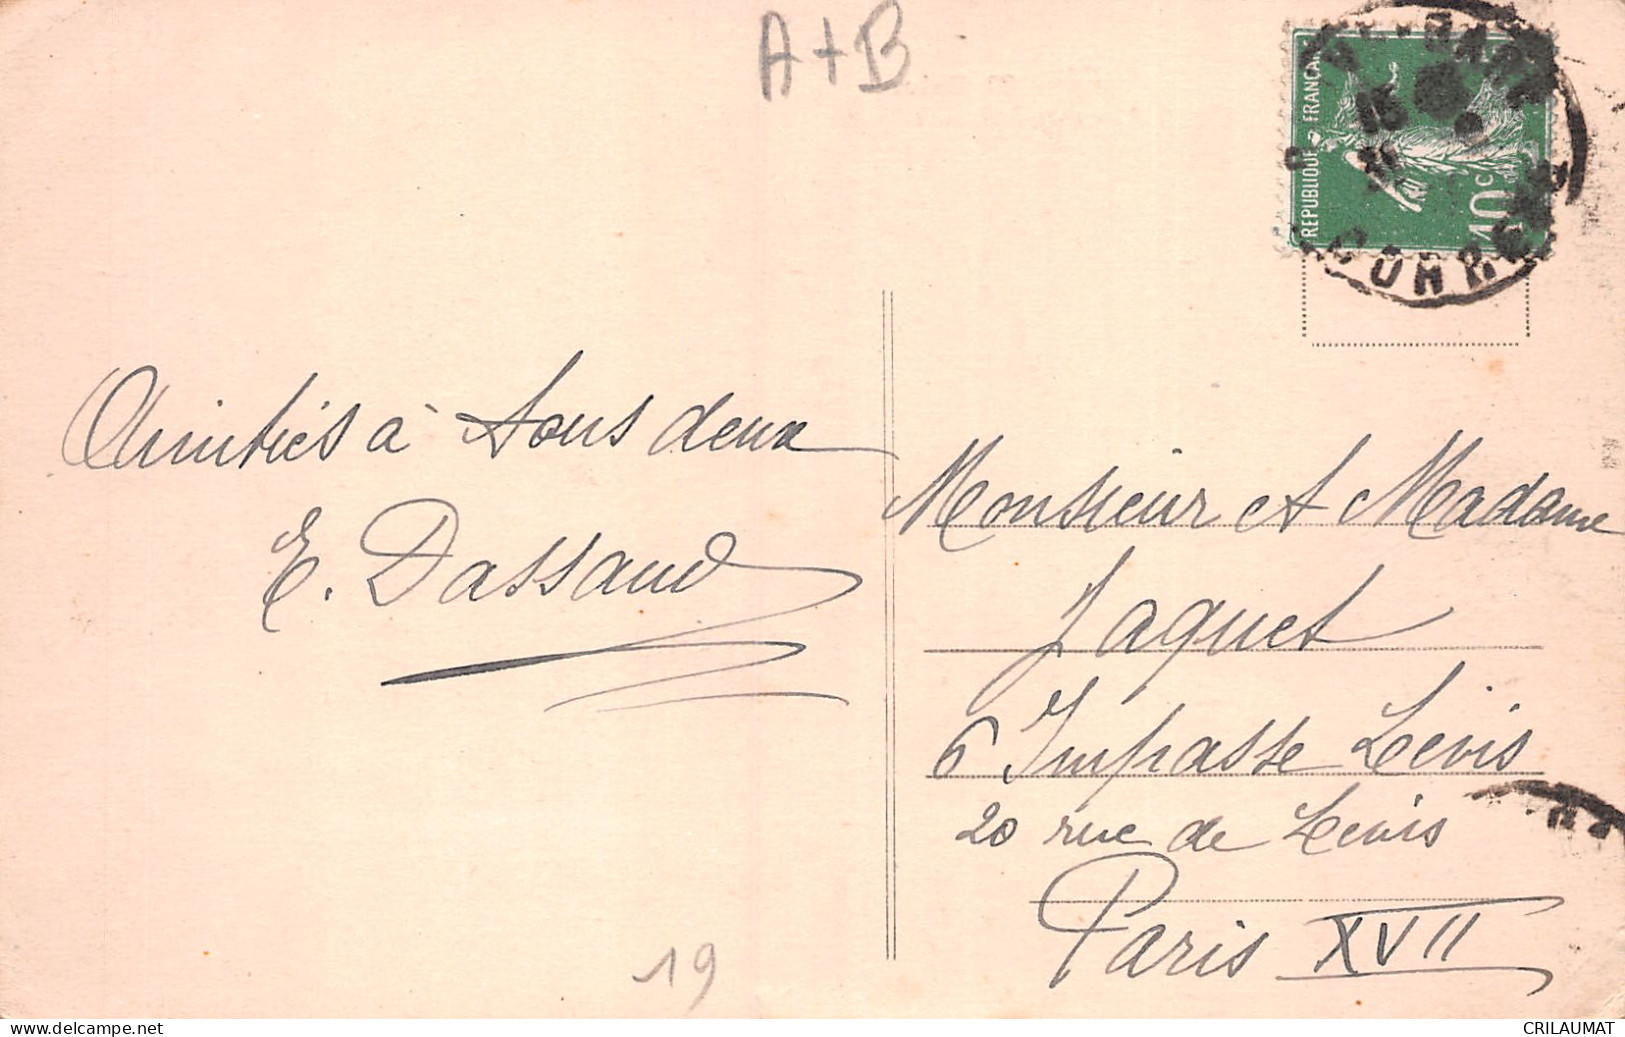 A+B
REPUBLIQUE FRANÇAISE
10c
CORREZE
Amitiés à tous deux
E. Dassaud
Monsieur et Madame
Jaquet
6 Impasse Levis
20 rue de Levis
Paris XVII
19
www.delcampe.net
CRILAUMAT